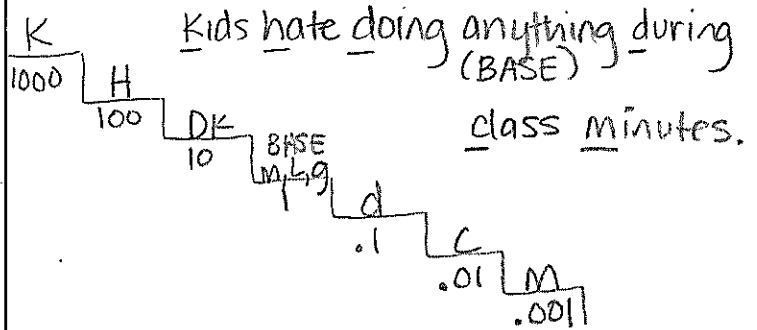 Kids hate doing anything during
(BASE)
class minutes.
K
1000
H
100
DK
10
BASE
m, L, g
1
d
.1
C
.01
M
.001